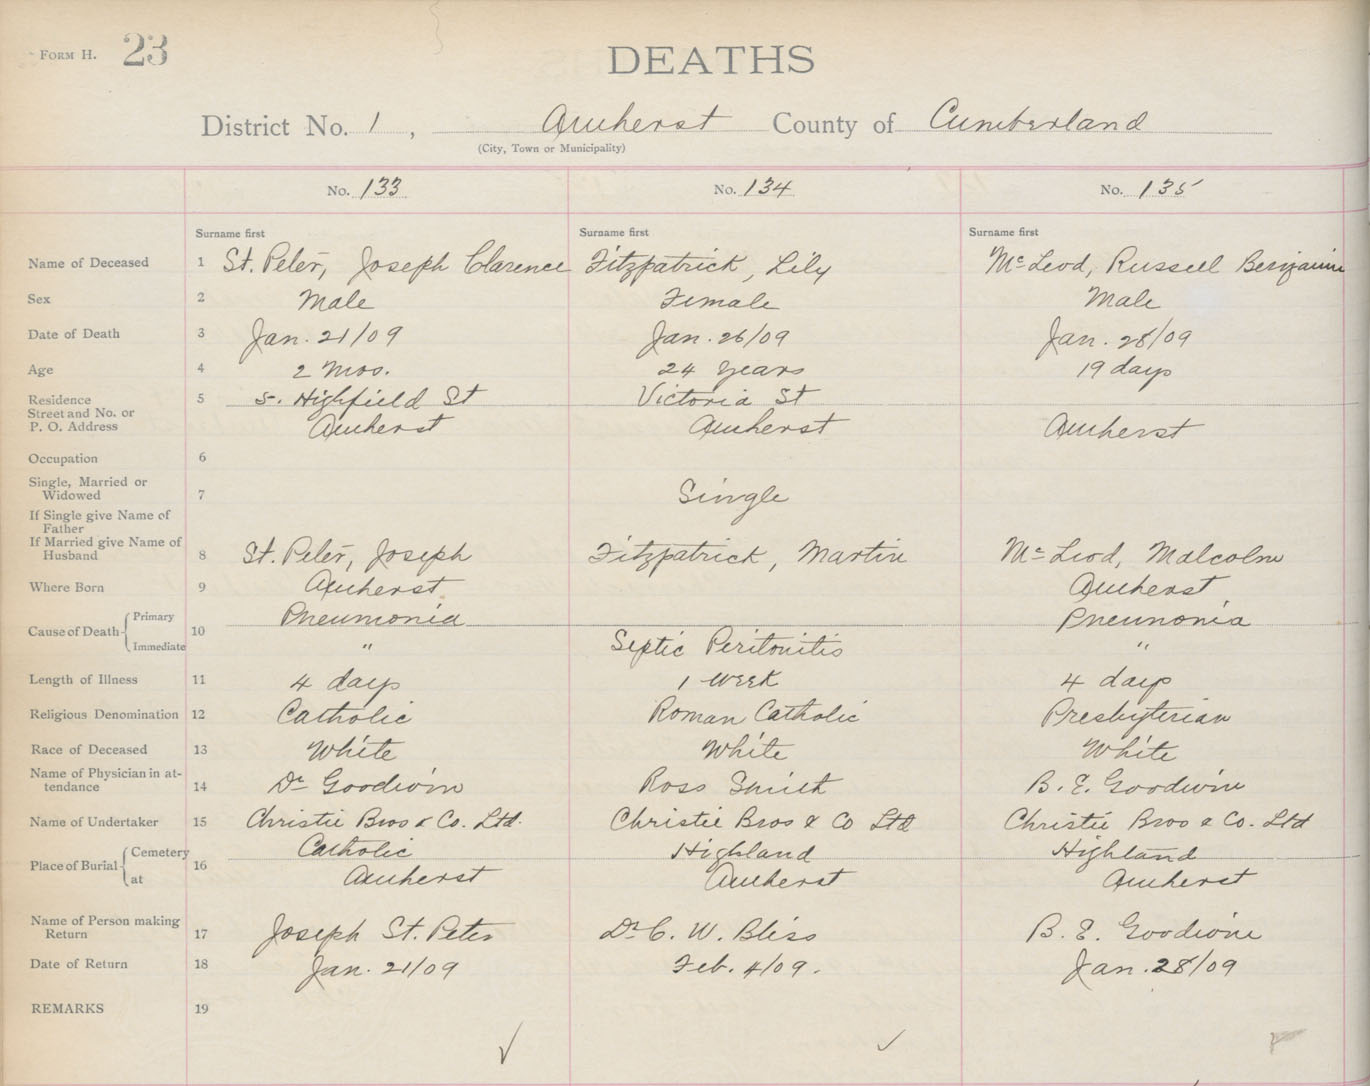 Form H. 23
DEATHS
District No. 1, Amherst County of Cumberland
(City, Town or Municipality)
No. 133 No. 134 No. 135
Surname first Surname first Surname first
Name of Deceased 1 St. Peter, Joseph Clarence Fitzpatrick, Lily McLeod, Russell Benjamin
Sex 2 Male Female Male
Date of Death 3 Jan. 21/09 Jan. 26/09 Jan. 28/09
Age 4 2 mos. 24 years 19 days
Residence 5 5. Highfield St Victoria St
Street and No. or
P. O. Address Amherst Amherst Amherst
Occupation 6
Single, Married or
Widowed 7 Single
If Single give Name of
Father
If Married give Name of
Husband 8 St. Peter, Joseph Fitzpatrick, Martin McLeod, Malcolm
Where Born 9 Amherst Amherst
Cause of Death Primary 10 Pneumonia Pneumonia
Immediate " Septic Peritonitis "
Length of Illness 11 4 days 1 week 4 days
Religious Denomination 12 Catholic Roman Catholic Presbyterian
Race of Deceased 13 White White White
Name of Physician in at-
tendance 14 Dr Goodwin Ross Smith B. E. Goodwin
Name of Undertaker 15 Christie Bros & Co. Ltd. Christie Bros & Co Ltd Christie Bros & Co. Ltd
Place of Burial Cemetery 16 Catholic Highland Highland
at Amherst Amherst Amherst
Name of Person making
Return 17 Joseph St. Peter Dr C. W. Bliss B. E. Goodwin
Date of Return 18 Jan. 21/09 Feb. 4/09. Jan. 28/09
REMARKS 19